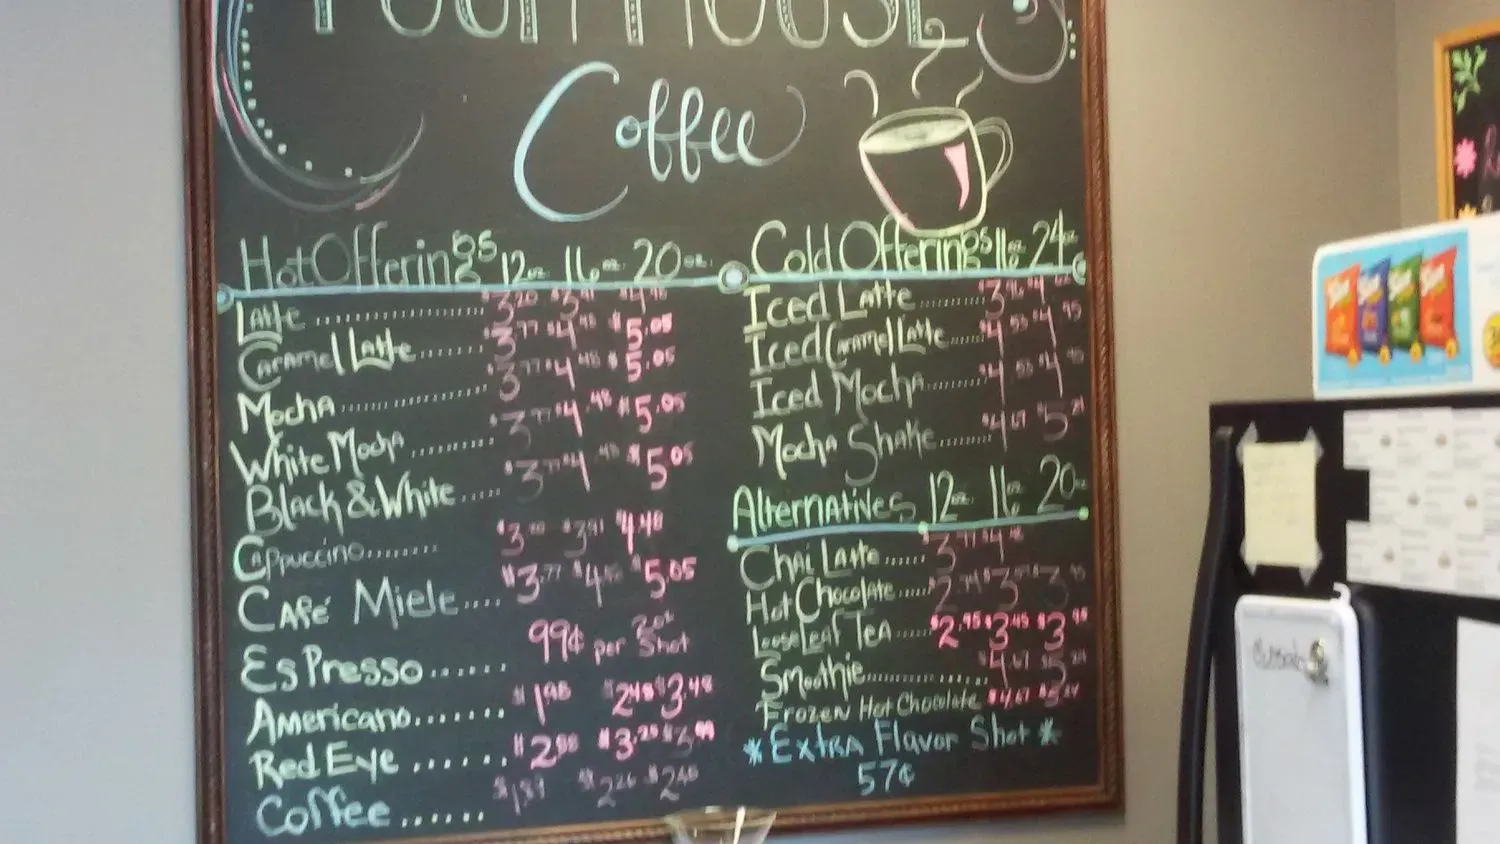 Coffee
Hot Offerings 12oz. 16oz. 20oz.
Latte .................. $3.20
Caramel Latte....... $3.77 $4.48 $5.05
Mocha ................. $3.77 $4.48 $5.05
White Mocha .......... $3.77 $4.48 $5.05
Black & White ..... $3.77 $4.48 $5.05
Cappuccino......... $3.20 $3.91 $4.48
Café Miele.... $3.77 $4.48 $5.05
Espresso ...... 99¢ per 2oz Shot
Americano....... $1.98 $2.48 $3.48
Red Eye ...... $2.98 $3.25 $3.99
Coffee ...... $2.26
Cold Offerings 16oz 24oz
Iced Latte ..........
Iced Caramel Latte...... $4.53 $4.95
Iced Mocha......... $4.53 $4.95
Mocha Shake........ $4.67 $5.24
Alternatives 12oz 16oz 20oz
Chai Latte......
Hot Chocolate......
Loose Leaf Tea...... $2.95 $3.45 $3.95
Smoothie............... $4.67 $5.24
Frozen Hot Chocolate $4.67 $5.24
*Extra Flavor Shot*
57¢